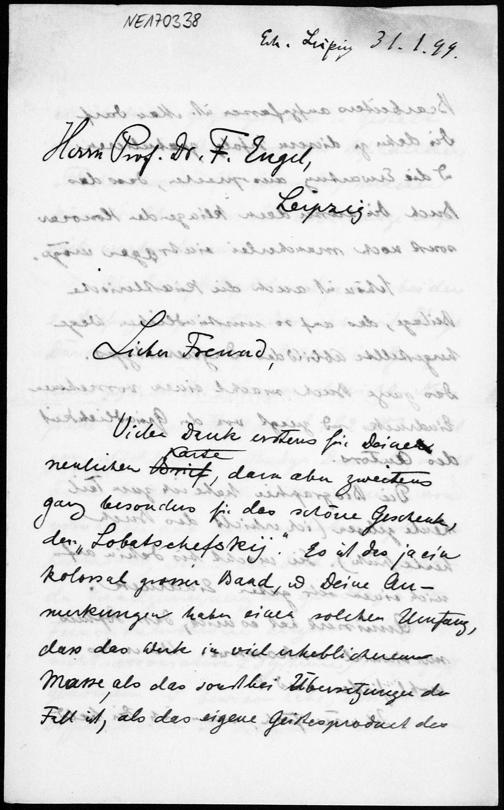 NE170338
Leipzig 31.1.99.
Herrn Prof. Dr. F. Engel,
Leipzig
Lieber Freund,
Vielen Dank erstens für Deine
neulichen Brief, dann aber zweitens
Karte
ganz besonders für das schöne Geschenk,
den „Lobatschefskij". Es ist das ja ein
kolossal grosser Band, u Deine An-
merkungen haben einen solchen Umfang,
dass das Werk in viel erheblicherem
Masse, als das sonst bei Übersetzungen der
Fall ist, als das eigene Geistesproduct des